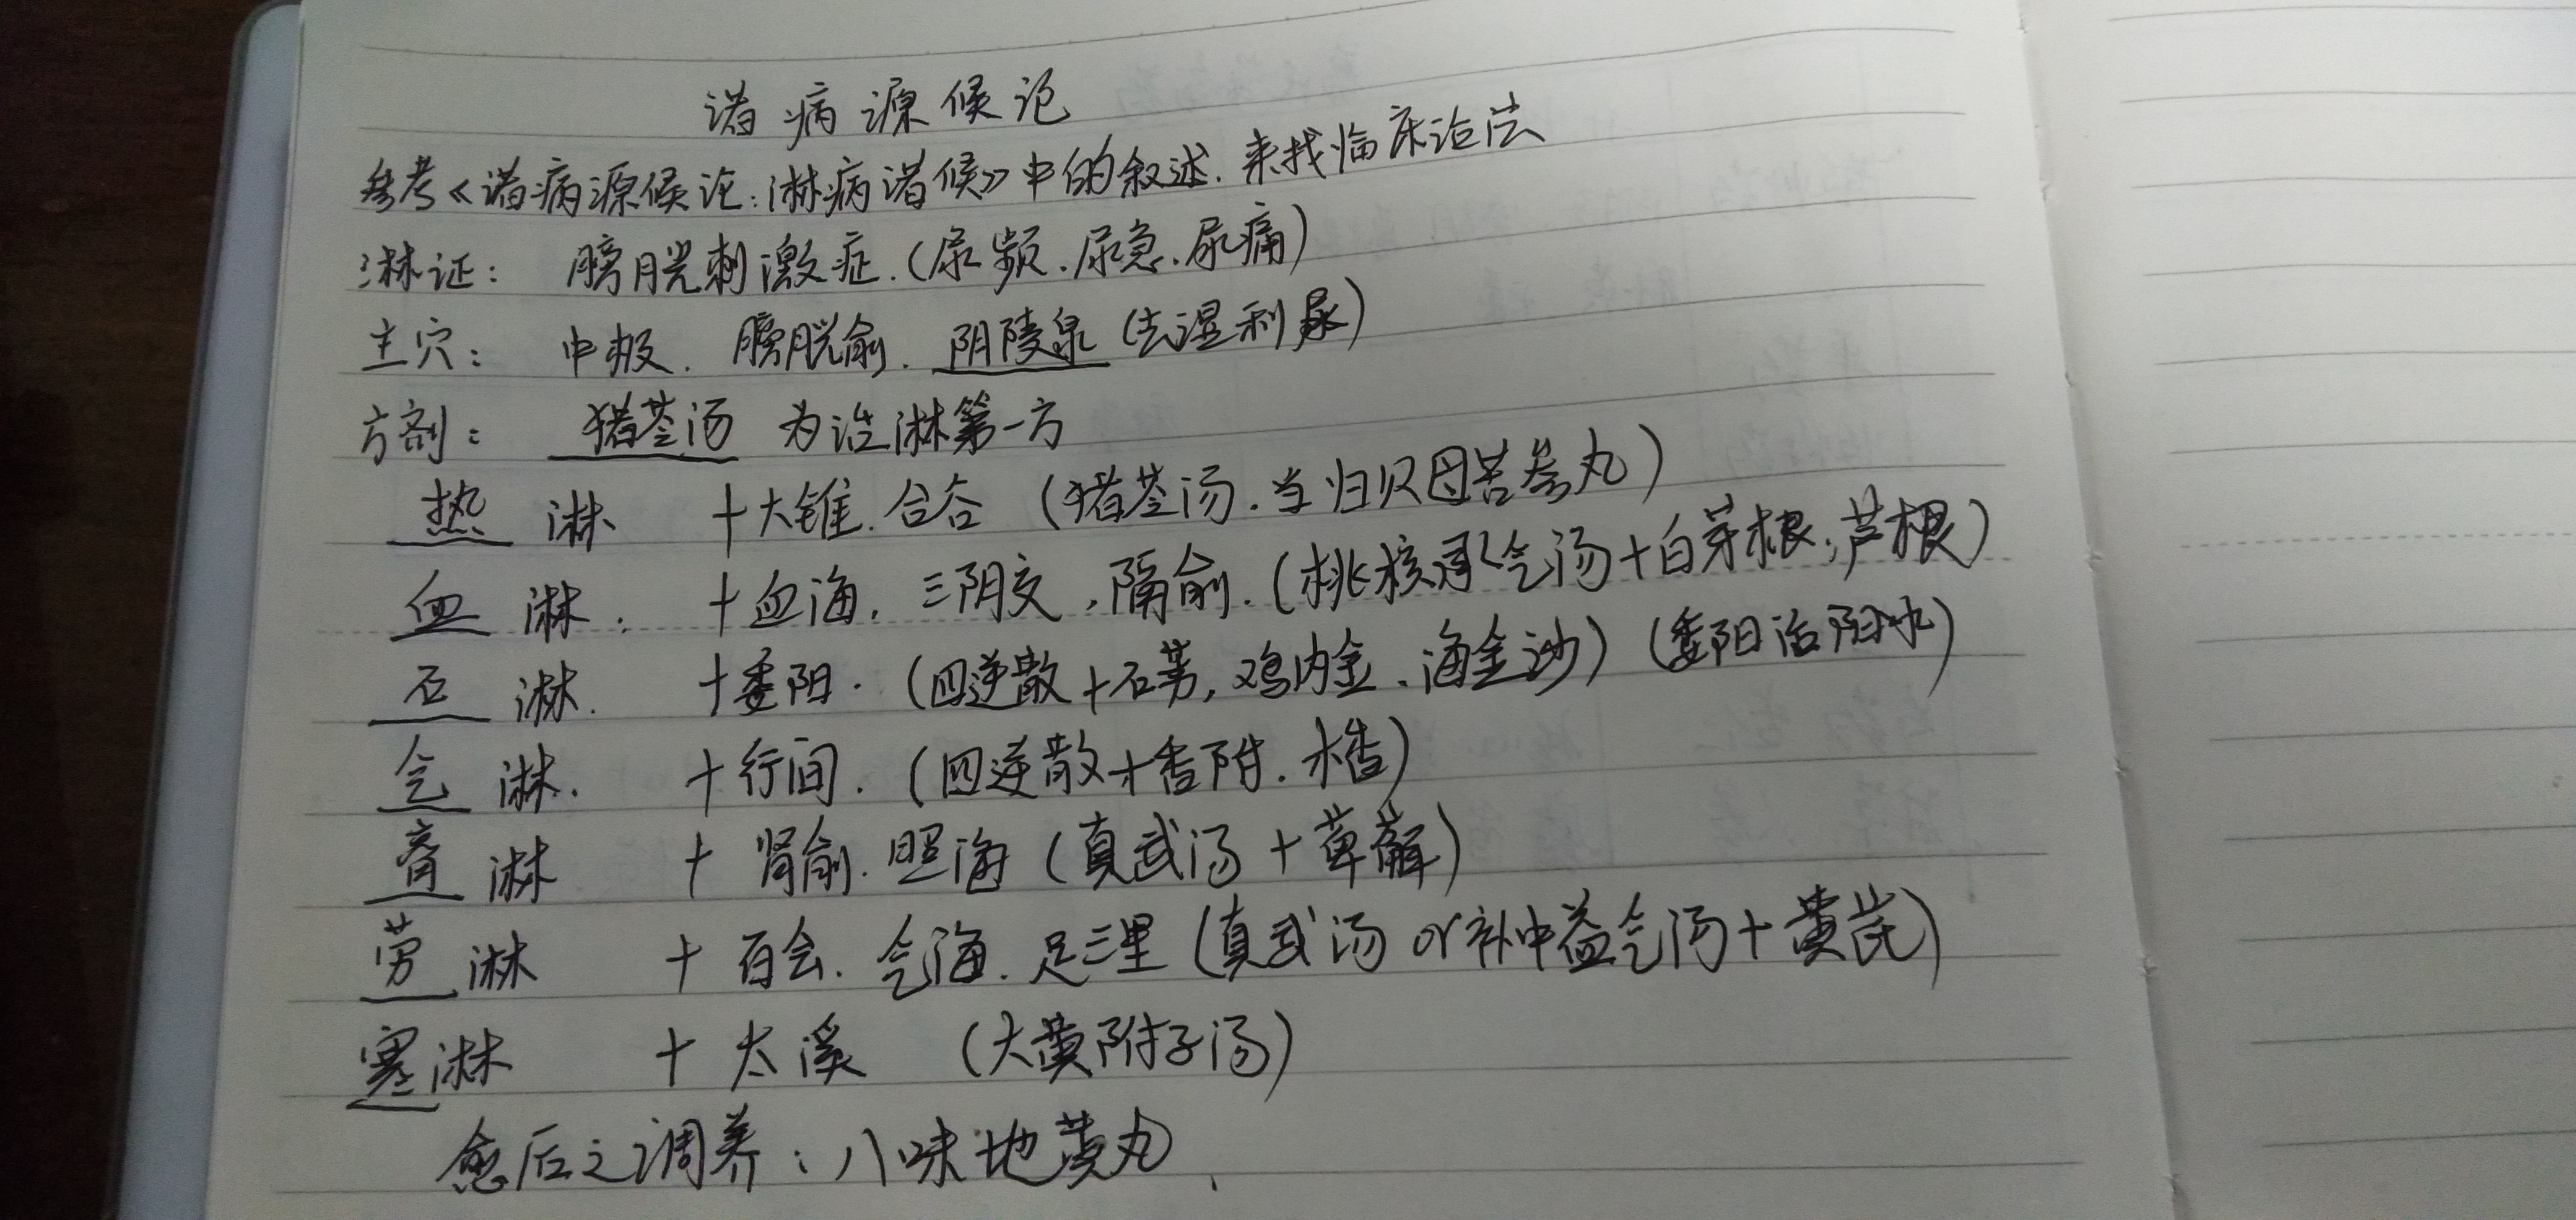 诸病源候论
参考《诸病源候论:淋病诸候》中的叙述.来找临床治法
淋证: 膀胱刺激症.(尿频.尿急.尿痛)
主穴: 中极. 膀胱俞. 阴陵泉 (去湿利尿)
方剂: 猪苓汤 为治淋第一方
热淋 +大锥.合谷 (猪苓汤.当归贝母苦参丸)
血淋. +血海,三阴交,隔俞.(桃核承气汤+白茅根,芦根)
石淋. +委阳.(四逆散+石苇,鸡内金、海金沙)(委阳治阳水)
气淋. +行间.(四逆散+香附.木香)
膏淋 + 肾俞.照海(真武汤+萆薢)
劳淋 + 百会.气海.足三里(真武汤 or 补中益气汤+黄芪)
寒淋 + 太溪 (大黄附子汤)
愈后之调养:八味地黄丸、